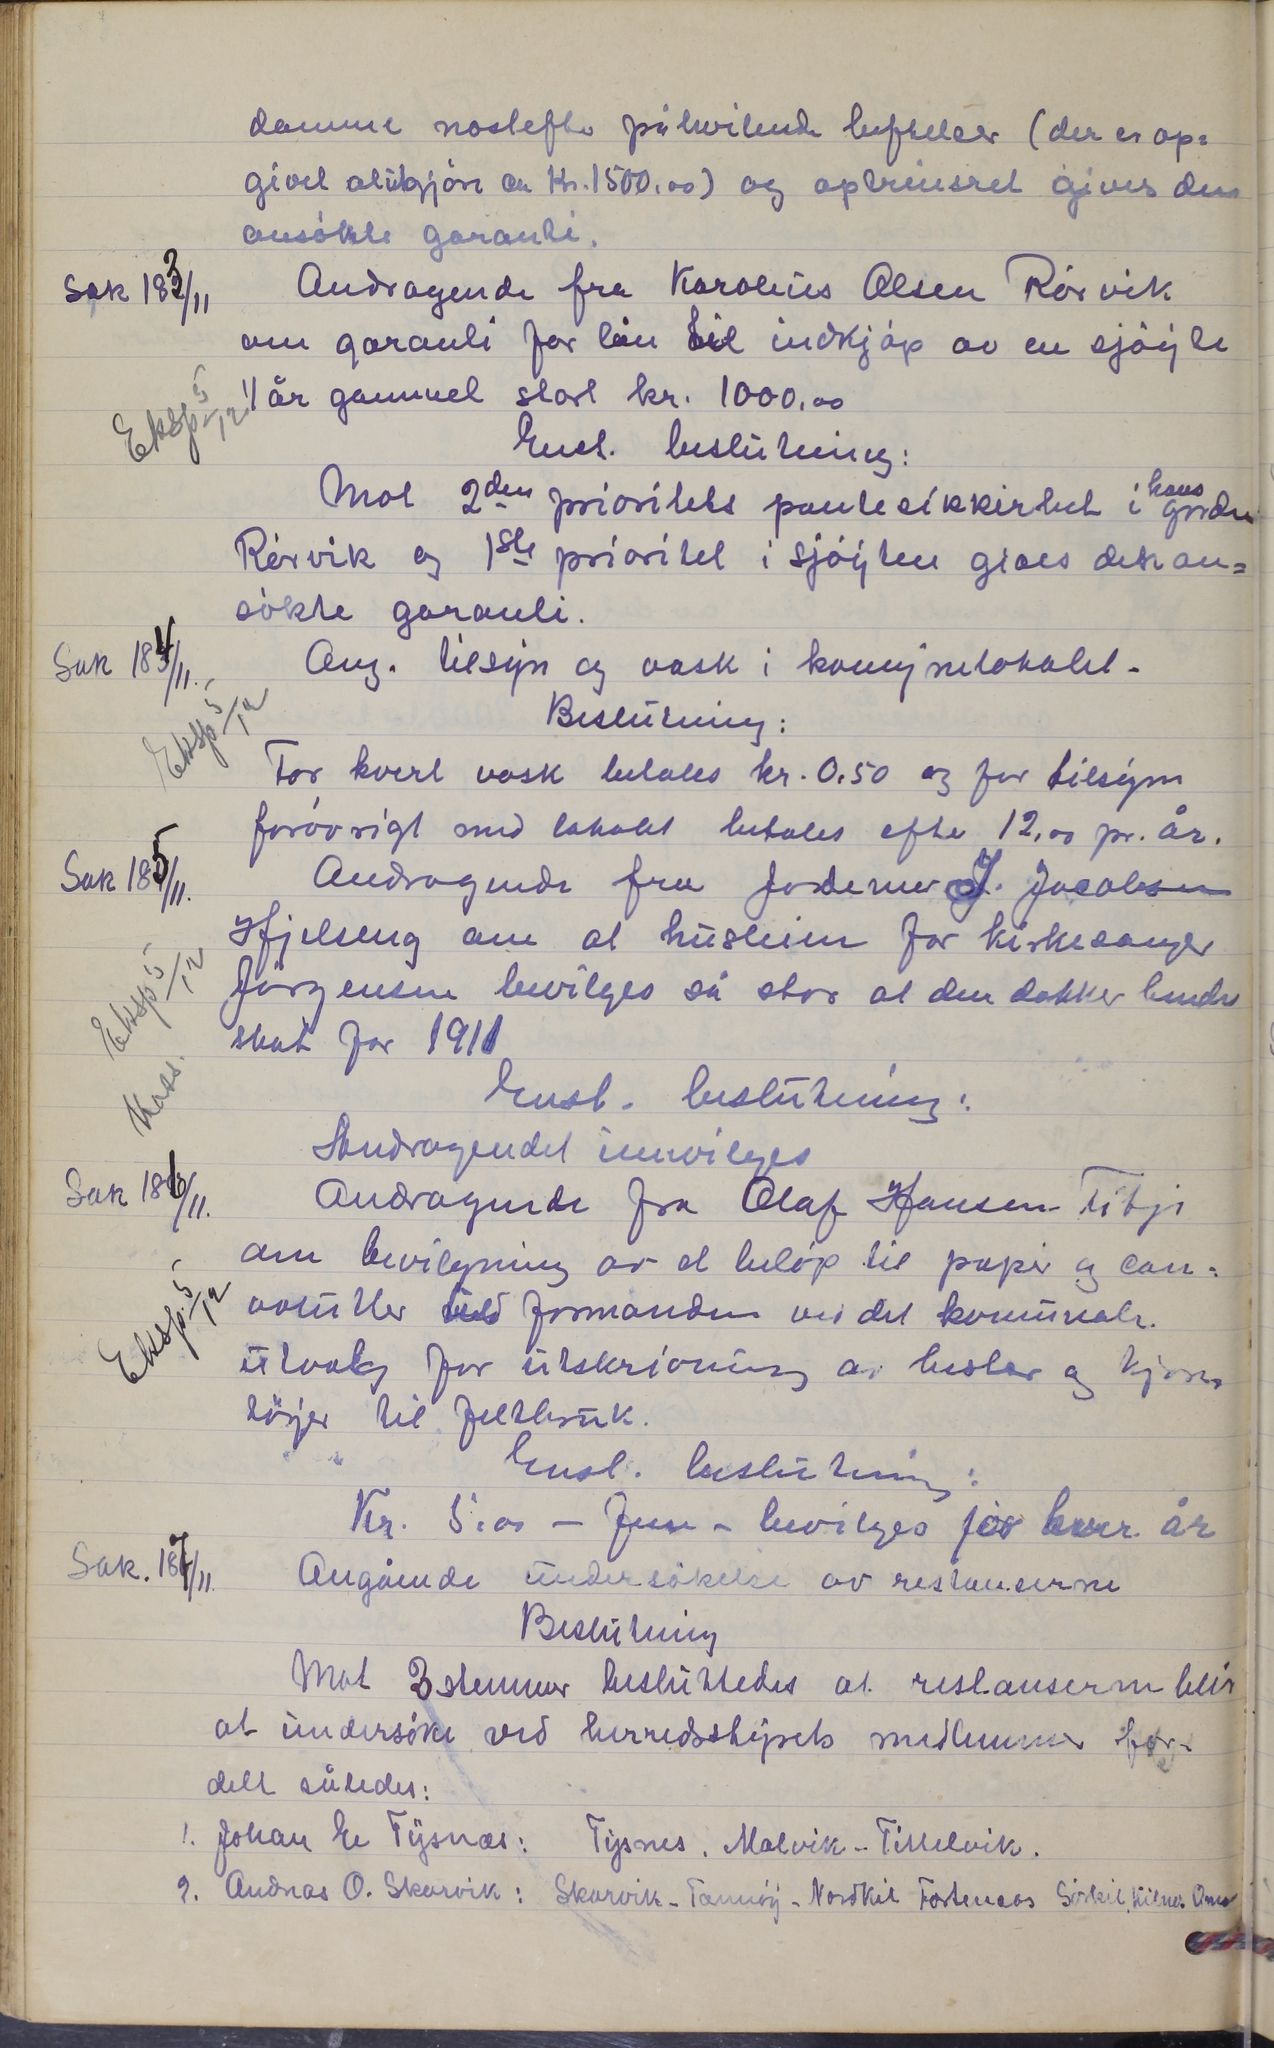 damme næstefter påhvilende heftelser (der er op=
givet at utgjøre ca Kr. 1500,00) og optrinsret gives den
ansökte garanti.
Sak 183/11 Andragende fra Karolius Olsen Rörvik
om garanti for lån til indkjöp av en sjöyte
1 år gammel stort kr. 1000,00
Eksp 5/12
Enst. beslutning:
Mot 2den prioritets pantesikkerhet i hans gården
Rörvik og 1ste prioritet i sjöyten gives den an=
sökte garanti.
Sak 184/11. Ang. tilsyn og vask i kommunelokalet.
Eksp 5/12
Beslutning:
For hvert vask betales kr. 0,50 og for tilsyn
forövrigt med lokalet betales efter 12,00 pr. år.
Sak 185/11. Andragende fra J. Jacobsen
Hjelseng om at husleien for kirkesanger
Jörgensen bevilges så stor at den dækker hendes
skat for 1911
Eksp 5/12
Kass.
Enst. beslutning:
Andragendet innvilges
Sak 186/11. Andragende fra Olaf Hansen
om bevilgning av et belöp til papir og con=
volutter til formanden ved det kommunale
utvalg for utskrivning av hester og kjöre=
töyer til feltbruk.
Eksp. 5/12
Enst. beslutning:
Kr. 5,00 – Fem – bevilges for hver år
Sak. 187/11. Angående undersökelse av restanserne
Beslutning
Mot 3 stemmer besluttedes at restanserne blir
at undersöke ved herredsstyrets medlemmer for=
delt således:
1. Johan E Tysnæs: Tysnes. Malvik – Tittelvik.
2. Andreas O. Skarvik: Skarvik – Tannöy – Nordkil Fortenaas Sörkil, Kilnes